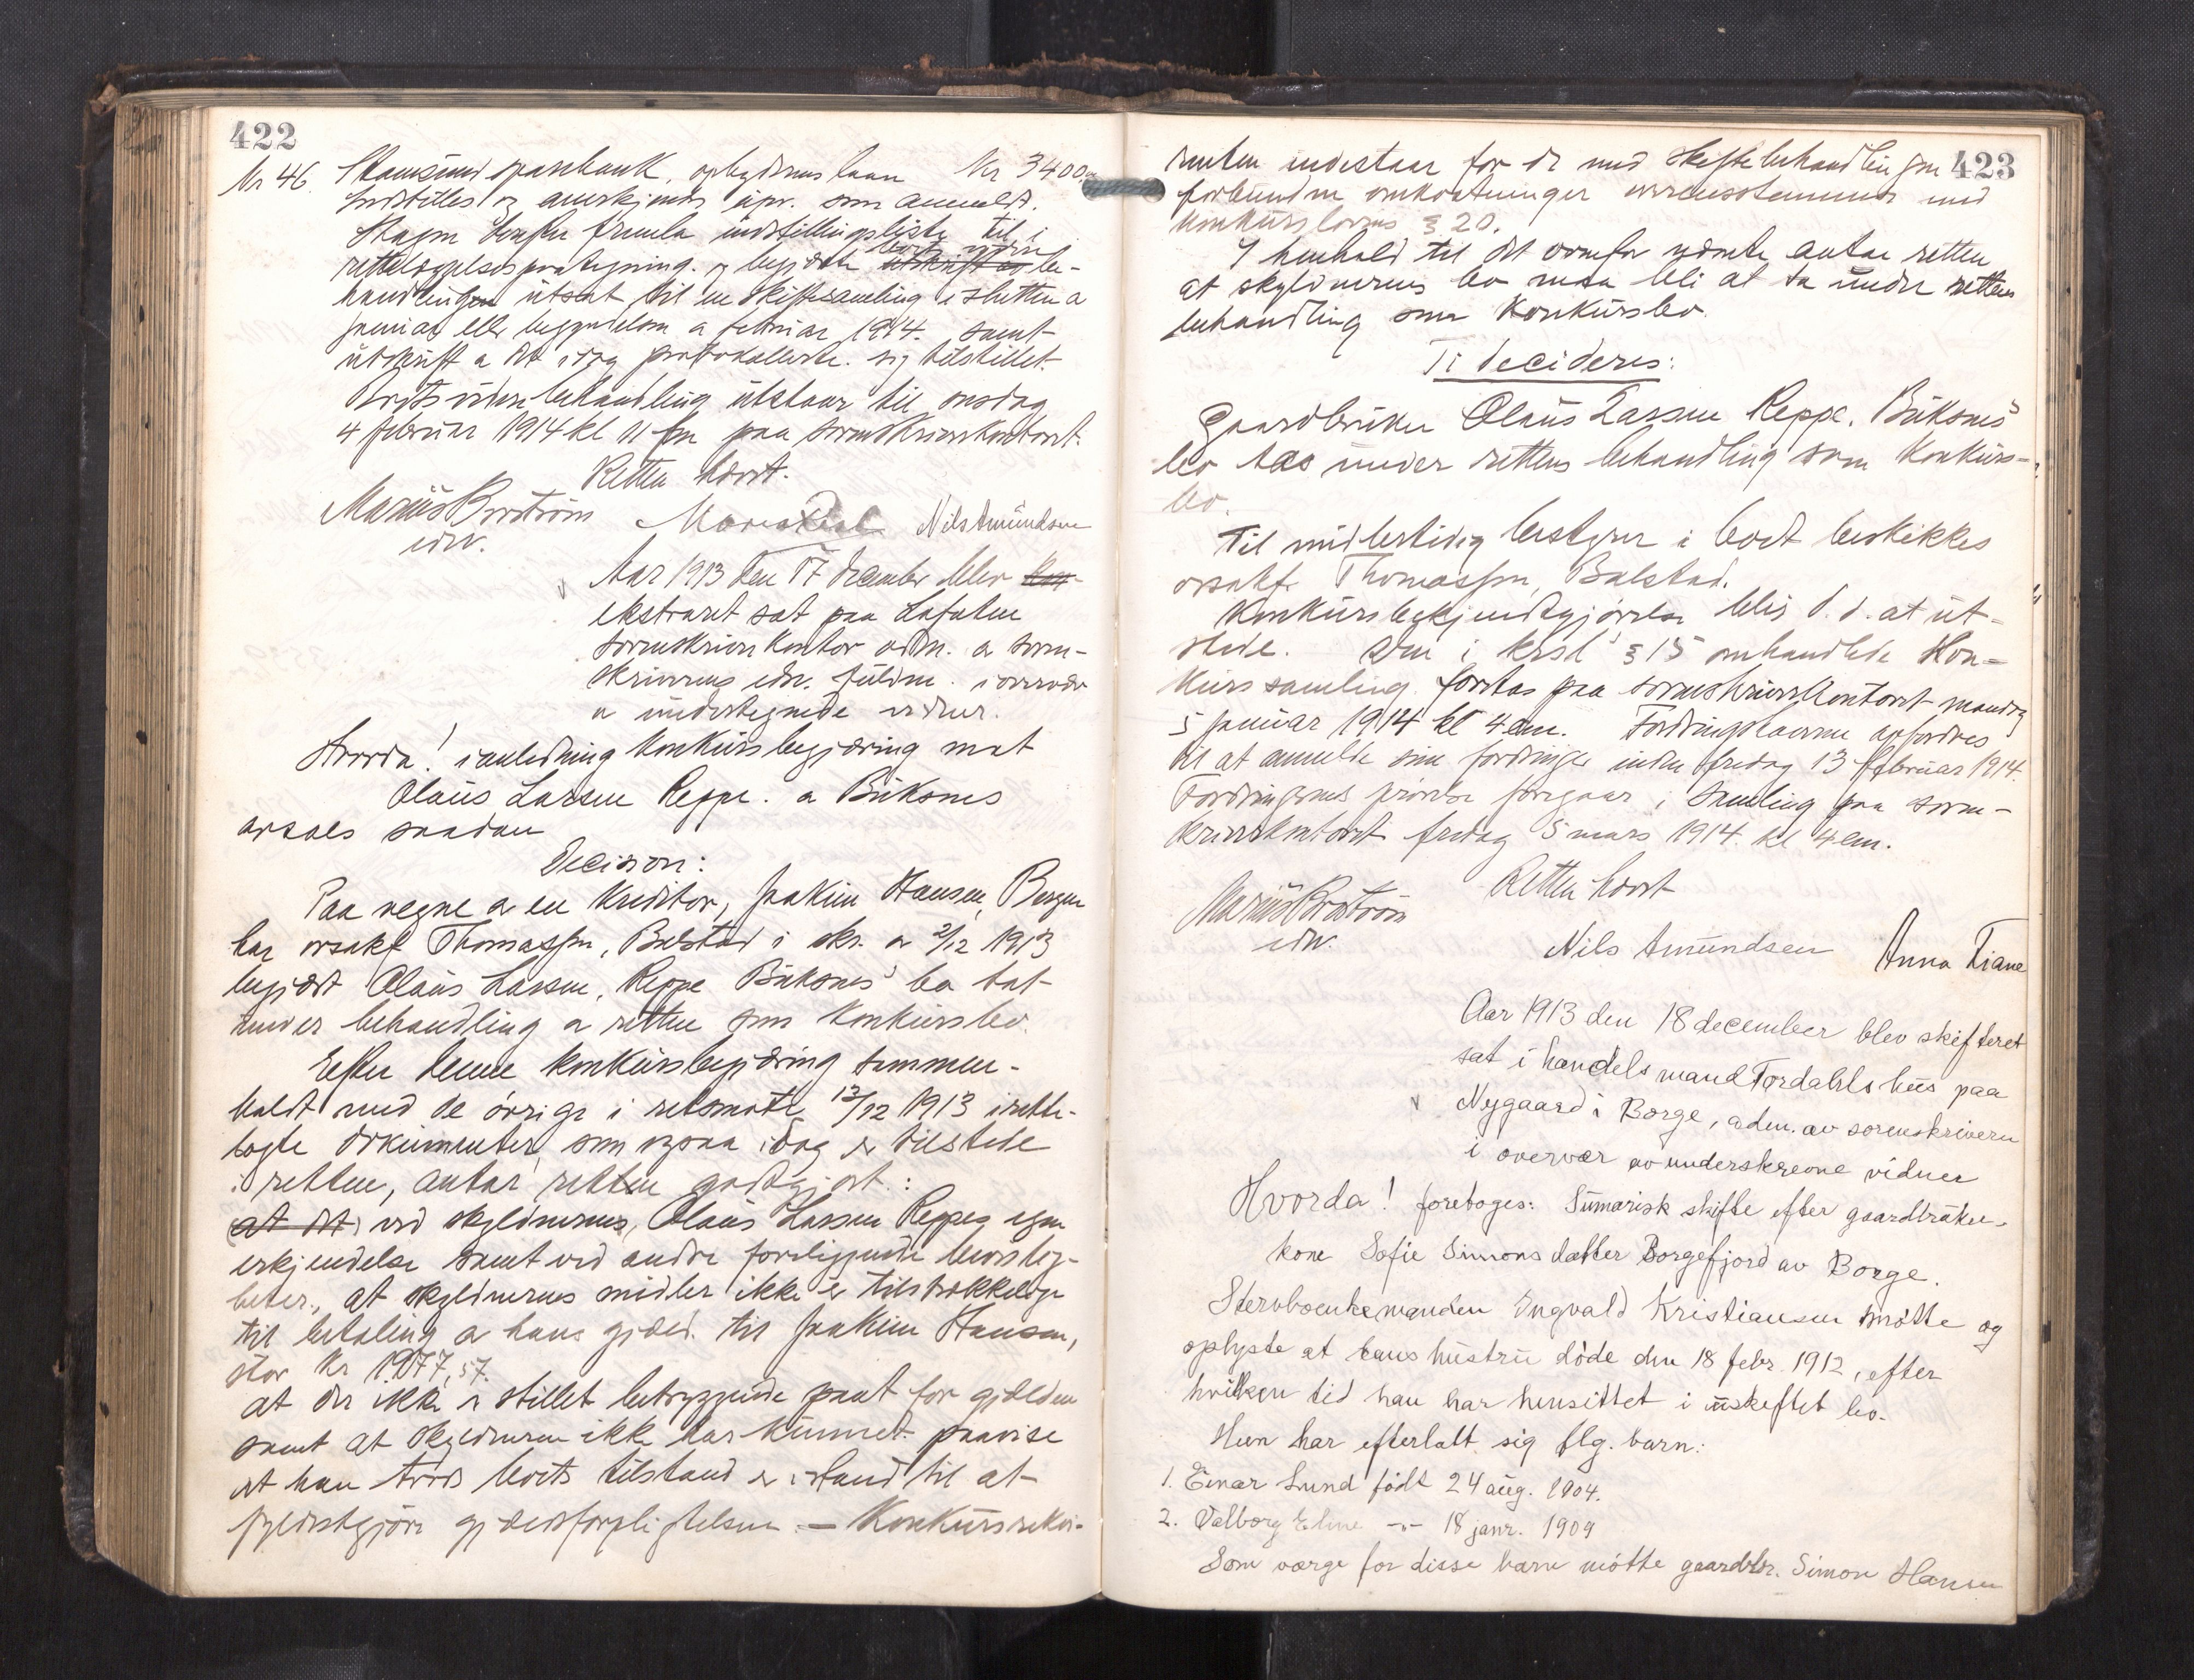 422
Nr 46. Stamsund sparebank, opbydrmslaan Kr 3400,00
Indstilles og anerkjendes upr. som anmeldt.
fremla indstillingsliste til i
rettelæggelsespaategning. og begjærte boets videre utskrift av be-
handlingen utsat til en skiftesamling i slutten a
januar eller begyndelsen a februar 1914. samt
utskrift a det idag protokollerte. sig tilstillet.
Boets videre behandling utstaar til onsdag
4 februar 1914 kl 11 fm paa sorenskriverkontoret.
Retten hævet.
Marius Brostrøm
edv.
Nils Amundsen
Aar 1913 den 17 december blev
ekstraret sat paa Lofoten
sorenskriverkontor adm. a soren-
skriverens edv. fuldm. i overvær
a undertegnede vidner.
Hvorda! i anledning konkursbegjæring mot
Olaus Larsen Reppe. a Buksnes
avsaes saadan
Decision:
Paa vegne a en kreditor, Joakim Hansen, Bergen
har orsakf Thomassen, Balstad i skr. a 2/12 1913
begjært Olaus Larsen, Reppe Buksnes' bo tat
under behandling a retten som konkursbo.
Efter denne konkursbegjæring sammen-
holdt med de øvrige i retsmøte 12/12 1913 irette-
lagte dokumenter, som ogsaa idag er tilstede
i retten, antar retten godtgjort:
at det ved skyldnerens, Olaus Larsen Reppes egen
erkjendelse samt ved andre foreliggende bevislig-
heter, at skyldnerens midler ikke er tilstrækkelige
til betaling a hans gjæld til Joakim Hansen,
stor Kr 1977,57.
at der ikke er stillet betryggende pant for gjælden
samt at skyldneren ikke har kunnet paavise
at han trods boets tilstand er istand til at
fyldestgjøre gjældsforpligtelsen. – Konkursrekvi-
423
renten indestaar for de med skiftebehandlingen
forbundne omkostninger overensstemmende med
konkurslovens § 20.
I henhold til det ovenfor nævnte antar retten
at skyldnerens bo maa bli at ta under rettens
behandling som konkursbo.
Ti decideres:
Gaardbruker Olaus Larsen Reppe. Buksnes'
bo tas under rettens behandling som konkurs-
bo.
Til midlertidig bestyrer i boet beskikkes
orsakf. Thomassen, Balstad.
Konkursbekjendtgjørelse blir d.d. at ut-
stede. Den i ksl § 15 omhandlede kon-
kurssamling foretas paa sorenskriverkontoret mandag
5 januar 1914 kl 4 em. Fordringshaverne opfordres
til at anmelde sine fordringer inden fredag 13 februar 1914.
Fordringernes prøvelse foregaar i samling paa soren-
skriverkontoret fredag 5 mars 1914. kl 4 em.
Retten hævet
Marius Brostrøm
edv.
Nils Amundsen Anna Tiane
Aar 1913 den 18 december blev skifteret
sat i handelsmand Tordahls hus paa
Nygaard i Borge, adm. av sorenskriveren
i overvær av underskrevne vidner
Hvorda! foretoges: Summarisk skifte efter gaardbruker-
kone Sofie Simonsdatter Borgefjord av Borge.
Stervboenkemanden Ingvald Kristiansen møtte og
oplyste at hans hustru døde den 18 febr. 1912, efter
hvilken tid han har hensittet i uskiftet bo.
Hun har efterlatt sig flg. barn:
1. Einar Lund født 24 aug. 1904.
2. Valborg Eline -"- 18 janr. 1909
Som værge for disse barn møtte gaardbr. Simon Hansen